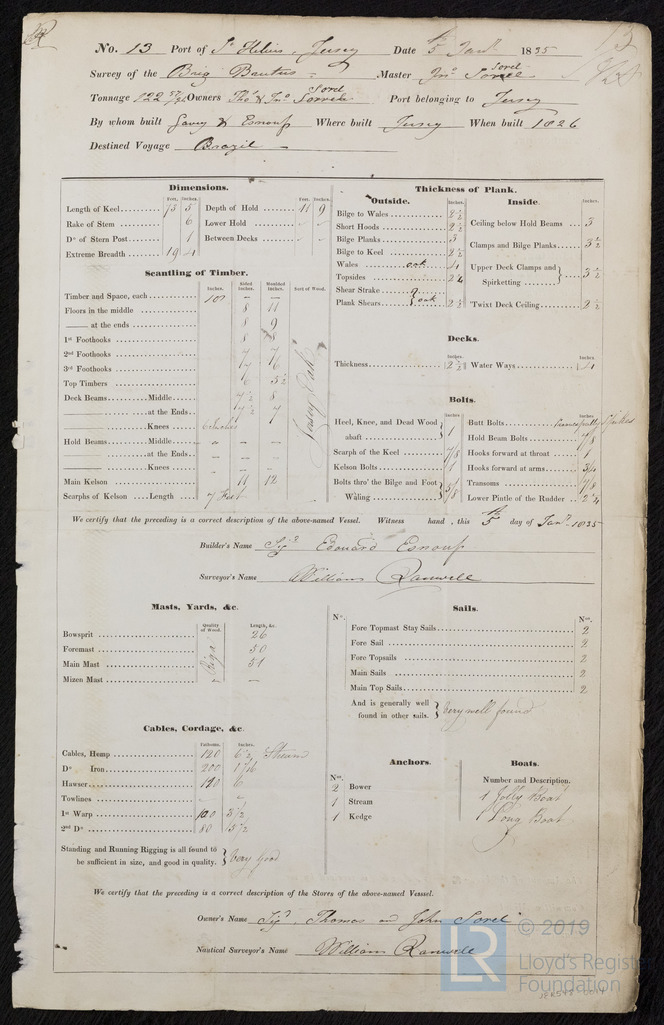 No. 13 Port of St Heliers Jersey Date 5 Jany 1835
Survey of the Brig Brutus Master Jno Sorel
Tonnage 122 Owners Thos & Jno Sorel Port belonging to Jersey
By whom built Gavey & Esnouf Where built Jersey When built 1826
Destined Voyage Brazil
Dimensions.
Feet. Inches. Feet. Inches.
Length of Keel 73 3 Depth of Hold 11 9
Rake of Stem 6 Lower Hold
Do of Stern Post 1 Between Decks
Extreme Breadth 19 4
Scantling of Timber.
Inches. Sided Inches. Moulded Inches. Sort of Wood.
Timber and Space, each 10 – –
Floors in the middle 8 11
—— at the ends 8 9
1st Foothooks 8 8
2nd Foothooks 7 7
3rd Foothooks 7 6
Top Timbers 6 5½
Deck Beams Middle 7½ 8
—— at the Ends 7½ 7
—— Knees
Hold Beams Middle – – –
—— at the Ends – – –
—— Knees – – –
Main Kelson 11 12
Scarphs of Kelson Length 7 Feet
Jersey Oak
Thickness of Plank.
Outside. Inches.
Bilge to Wales 2½
Short Hoods 2½
Bilge Planks 3
Bilge to Keel 2½
Wales oak 4
Topsides 2¼
Shear Strake
Plank Shears } oak 2½
Inside. Inches.
Ceiling below Hold Beams 3
Clamps and Bilge Planks 3½
Upper Deck Clamps and
Spirketting } 3½
'Twixt Deck Ceiling 2½
Decks.
Inches. Inches.
Thickness 2½ Water Ways 4
Bolts.
Inches. Inches.
Heel, Knee, and Dead Wood
abaft } 1
Scarph of the Keel 7/8
Kelson Bolts 1
Bolts thro' the Bilge and Foot
Waling } 5/8
Butt Bolts principally Spikes
Hold Beam Bolts 7/8
Hooks forward at throat 1
Hooks forward at arms 3/4
Transoms 7/8
Lower Pintle of the Rudder 2¼
We certify that the preceding is a correct description of the above-named Vessel. Witness hand, this 5 day of Jany 1835
Builder's Name Edouard Esnouf
Surveyor's Name William Ranwell
Masts, Yards, &c.
Quality of Wood. Length, &c.
Bowsprit 26
Foremast 50
Main Mast 51
Mizen Mast –
Riga
Sails.
No. Nos.
Fore Topmast Stay Sails 2
Fore Sail 2
Fore Topsails 2
Main Sails 2
Main Top Sails 2
And is generally well
found in other sails. } Very well found
Cables, Cordage, &c.
Fathoms. Inches.
Cables, Hemp 120 6½ Stream
Do Iron 200 1 1/16
Hawser 120 6
Towlines
1st Warp 100 3½
2nd Do 80 3½
Standing and Running Rigging is all found to
be sufficient in size, and good in quality. } Very good
Anchors.
Nos.
2 Bower
1 Stream
1 Kedge
Boats.
Number and Description.
1 Jolly Boat
1 Long Boat
We certify that the preceding is a correct description of the Stores of the above-named Vessel.
Owner's Name Thomas and John Sorel
Nautical Surveyor's Name William Ranwell
LR
© 2019
Lloyd's Register
Foundation